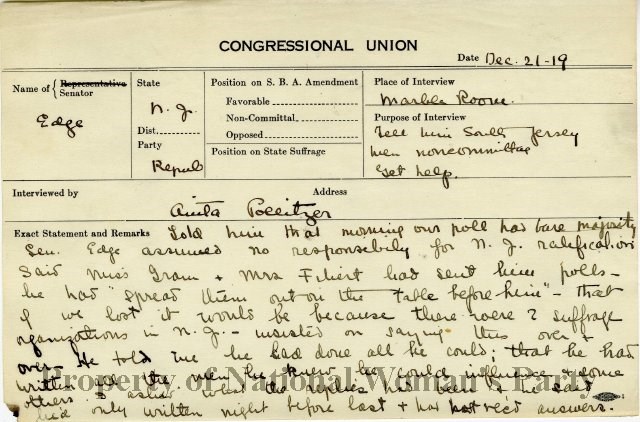 CONGRESSIONAL UNION
Date Dec. 21-19
Name of { Representative Senator
Edge
State
N. J.
Dist.
Party
Repub
Position on S. B. A. Amendment
Favorable
Non-Committal
Opposed
Position on State Suffrage
Place of Interview
Marble Room.
Purpose of Interview
Tell him South Jersey
men noncommittal
Get help.
Interviewed by
Anita Pollitzer
Address
Exact Statement and Remarks Told him that morning our poll had bare majority
Sen. Edge assumed no responsibily for N. J. ratification
Said Miss Gram + Mrs Filiert had sent him polls -
he had "spread them out on the table before him" - that
if we lost it would be because there were 2 suffrage
organizations in N. J. - insisted on saying this over +
over. He told me he had done all he could; that he had
written all the men he knew he could influence + some
others. I asked what the replies had been + he said
he'd only written night before last + had not rec'd answers.
Property of National Woman's Party